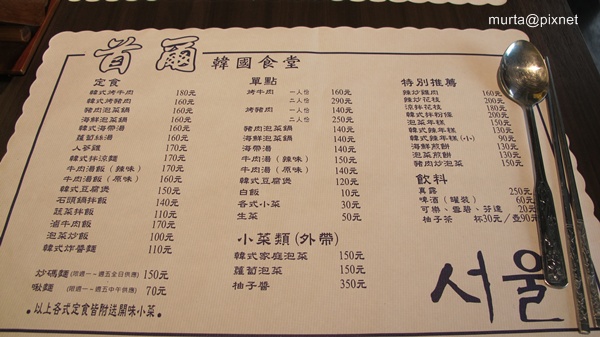 murta@pixnet
首爾 韓國食堂
定食
韓式烤牛肉 180元
韓式烤豬肉 160元
豬肉泡菜鍋 160元
海鮮泡菜鍋 160元
韓式海帶湯 160元
蘿蔔絲湯 160元
人蔘雞 170元
韓式拌涼麵 170元
牛肉湯飯（辣味） 170元
牛肉湯飯（原味） 160元
韓式豆腐煲 150元
石頭鍋拌飯 140元
蔬菜拌飯 110元
滷牛肉飯 170元
泡菜炒飯 100元
韓式炸醬麵 110元
炒碼麵（限週一～週五全日供應） 150元
啾麵（限週一～週五中午供應） 70元
●以上各式定食皆附送開味小菜●
單點
烤牛肉 一人份 160元
二人份 290元
烤豬肉 一人份 140元
二人份 250元
豬肉泡菜鍋 140元
海鮮泡菜鍋 140元
海帶湯 140元
牛肉湯（辣味） 150元
牛肉湯（原味） 140元
韓式豆腐煲 120元
白飯 10元
各式小菜 30元
生菜 50元
小菜類(外帶)
韓式家庭泡菜 150元
蘿蔔泡菜 150元
柚子醬 350元
特別推薦
辣炒雞肉 160元
辣炒花枝 200元
涼拌花枝 180元
韓式拌粉條 200元
泡菜年糕 150元
韓式辣年糕 130元
韓式辣年糕(小) 90元
海鮮煎餅 130元
泡菜煎餅 130元
豬肉炒泡菜 150元
飲料
真露 250元
啤酒（罐裝） 60元
可樂、雪碧、芬達 20元
柚子茶 杯30元/壺90元
서울